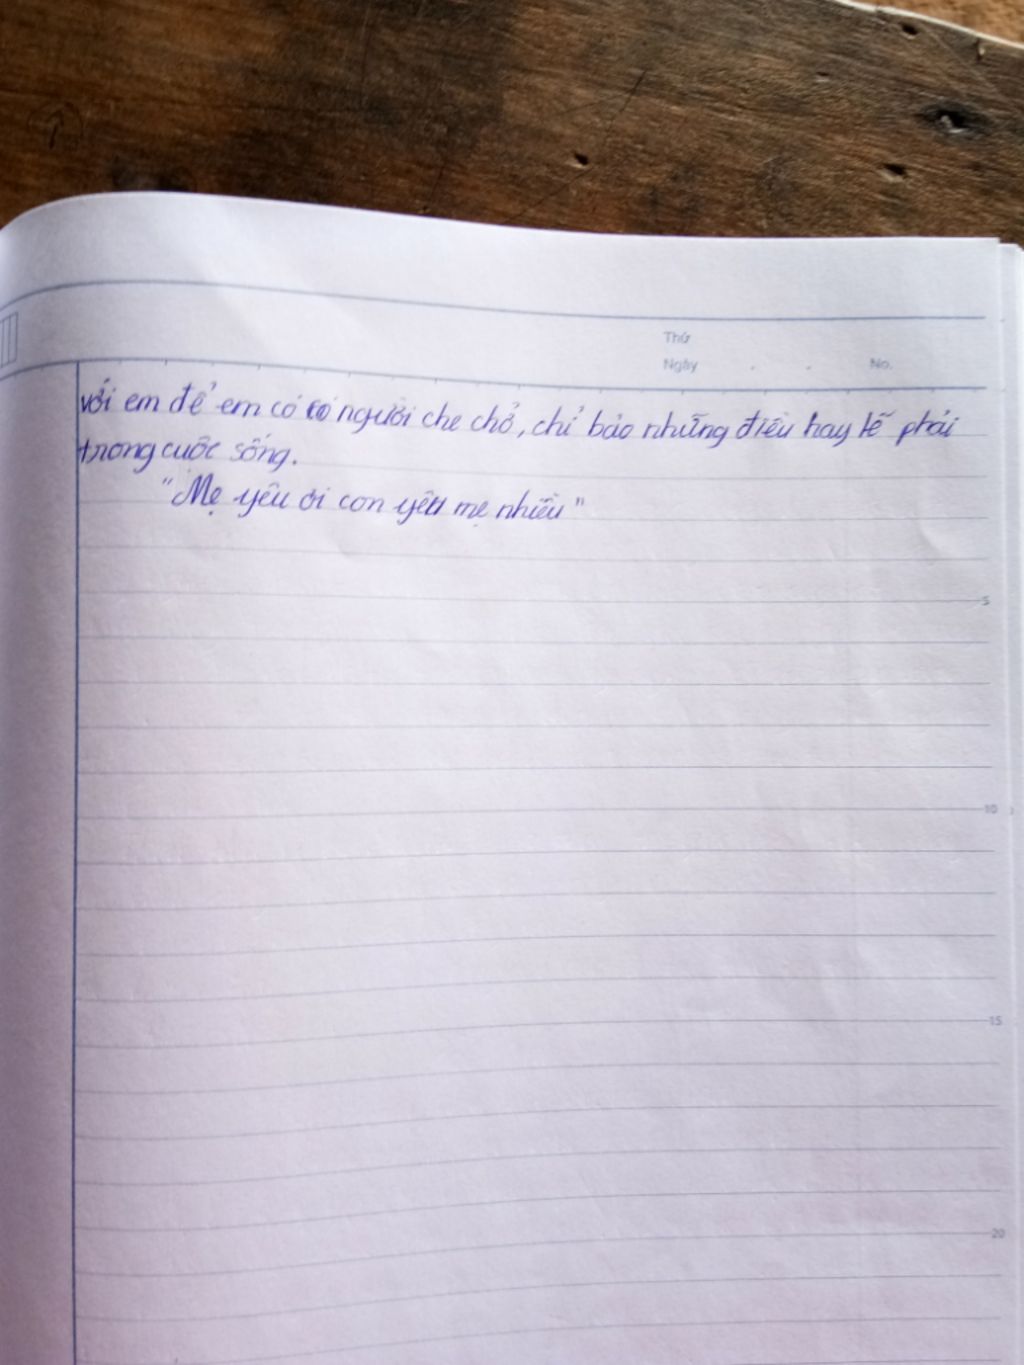 Thứ
Ngày . . No.
với em để em có có người che chở, chỉ bảo những điều hay lẽ phải
trong cuộc sống.
"Mẹ yêu ơi con yêu mẹ nhiều"
5
10
15
20